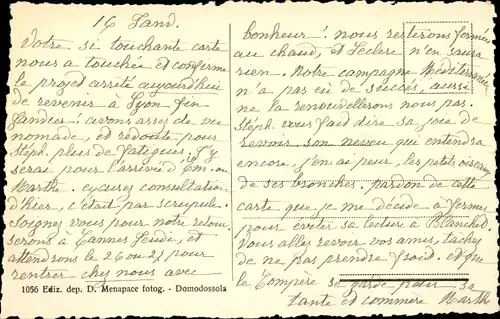 16 Janv.
Votre si touchante carte
nous a touchée et confirme
le projet arrêté aujourd'hui
de revenir à Lyon fin
Janvier: avons assez de vie
nomade, et redoute pour
Stéph. plus de fatigues. J'y
serai pour l'arrivée d'Em. ou
Marthe. consultation
d'hier, c'était par scrupule.
Soignez vous pour notre retour.
serons à Cannes Jeudi, et
attendrons le 26 ou 27 pour
rentrer chez nous avec
1056 Ediz. dep. D. Menapace fotog. - Domodossola
bonheur! nous resterons fermées
au chaud, et Leclerc n'en saura
rien. Notre campagne Méditerranée
n'a pas eu de succès, aussi
ne la renouvellerons nous pas.
Stéph. vous fait dire sa joie de
revoir son neveu qui entendra
encore, j'en ai peur, les petits oiseaux
de ses bronches. pardon de cette
carte que je me décide à fermer
pour éviter sa lecture à Blanchet.
Vous allez revoir vos amis, tachez
de ne pas prendre froid. et que
le Compère se garde pour sa
tante et commère Marthe